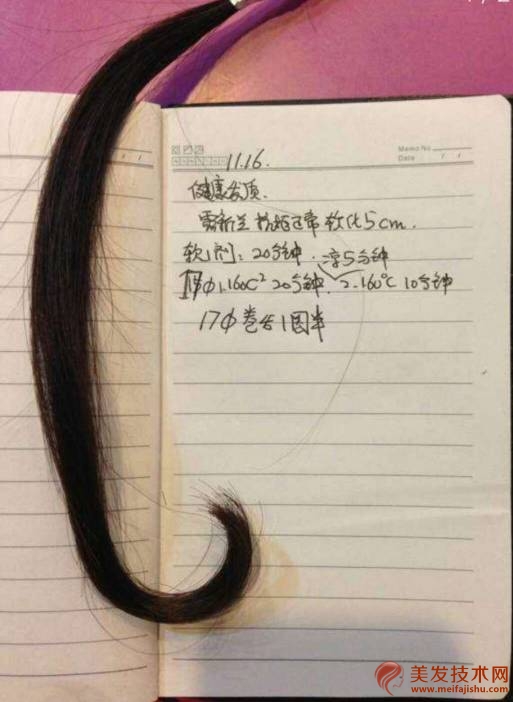 Memo No.
Date / /
11.16.
健康发质.
软化5cm.
软1剂: 20分钟. 淳5分钟
1.160C² 20分钟. 2.160℃ 10分钟
17φ卷杏1圆半
美发技术网
www.meifajishu.com